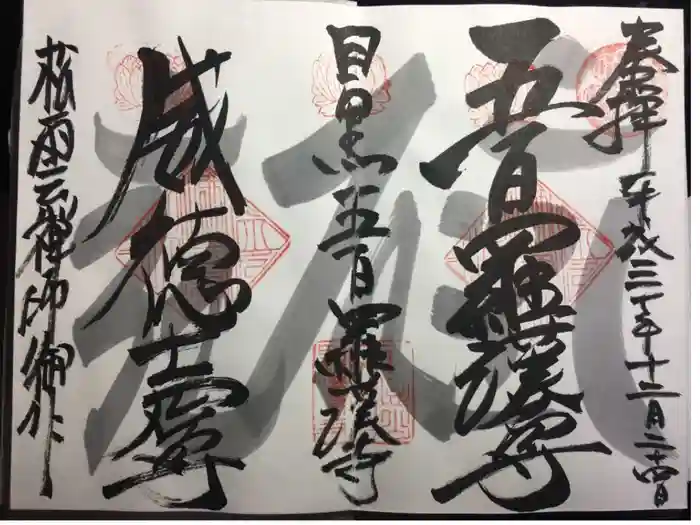 奉拝 平成三十年十二月二十四日
五百羅漢尊
目黒五百羅漢寺
威徳
松雲禅師御作